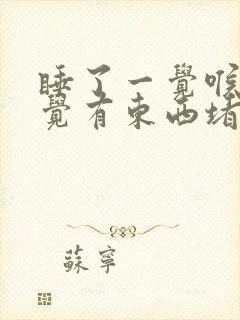 睡了一覺喉
覺有東西堵
蘇寧